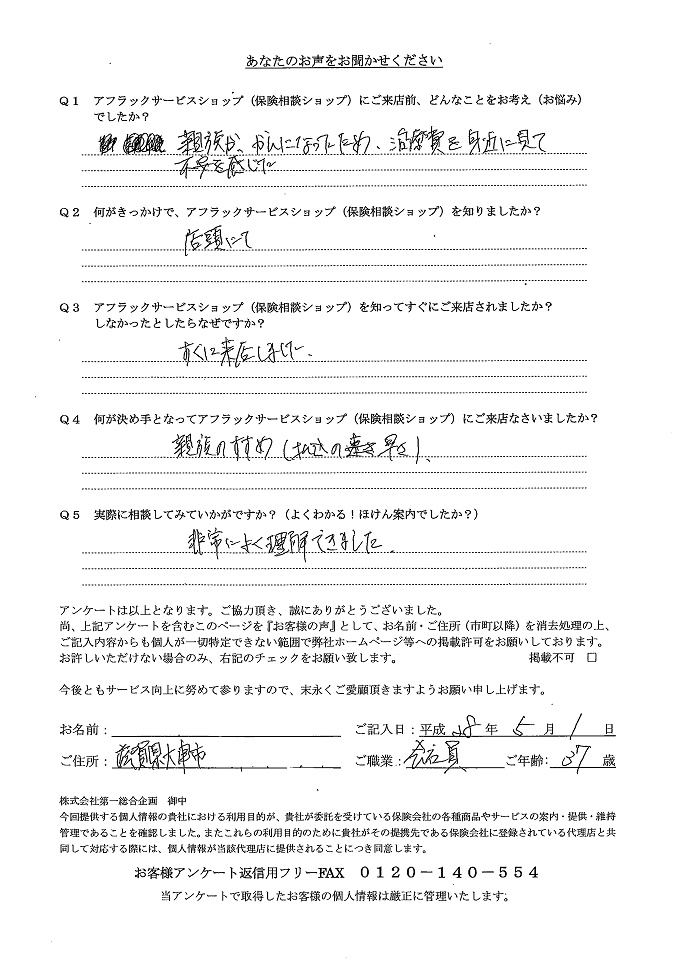 あなたのお声をお聞かせください
Q1 アフラックサービスショップ（保険相談ショップ）にご来店前、どんなことをお考え（お悩み）
でしたか？
親族が、がんになったため、治療費を身近に見て
不安を感じた
Q2 何がきっかけで、アフラックサービスショップ（保険相談ショップ）を知りましたか？
店頭にて
Q3 アフラックサービスショップ（保険相談ショップ）を知ってすぐにご来店されましたか？
しなかったとしたらなぜですか？
すぐに来店しました、
Q4 何が決め手となってアフラックサービスショップ（保険相談ショップ）にご来店なさいましたか？
親族のすすめ（払込の早さ）、
Q5 実際に相談してみていかがですか？（よくわかる！ほけん案内でしたか？）
非常によく理解できました．
アンケートは以上となります。ご協力頂き、誠にありがとうございました。
尚、上記アンケートを含むこのページを『お客様の声』として、お名前・ご住所（市町以降）を消去処理の上、
ご記入内容からも個人が一切特定できない範囲で弊社ホームページ等への掲載許可をお願いしております。
お許しいただけない場合のみ、右記のチェックをお願い致します。 掲載不可 □
今後ともサービス向上に努めて参りますので、末永くご愛顧頂きますようお願い申し上げます。
お名前： ご記入日：平成 28 年 5 月 1 日
ご住所： 滋賀県大津市 ご職業：会社員 ご年齢：37 歳
株式会社第一総合企画 御中
今回提供する個人情報の貴社における利用目的が、貴社が委託を受けている保険会社の各種商品やサービスの案内・提供・維持
管理であることを確認しました。またこれらの利用目的のために貴社がその提携先である保険会社に登録されている代理店と共
同して対応する際には、個人情報が当該代理店に提供されることにつき同意します。
お客様アンケート返信用フリーFAX 0120－140－554
当アンケートで取得したお客様の個人情報は厳正に管理いたします。